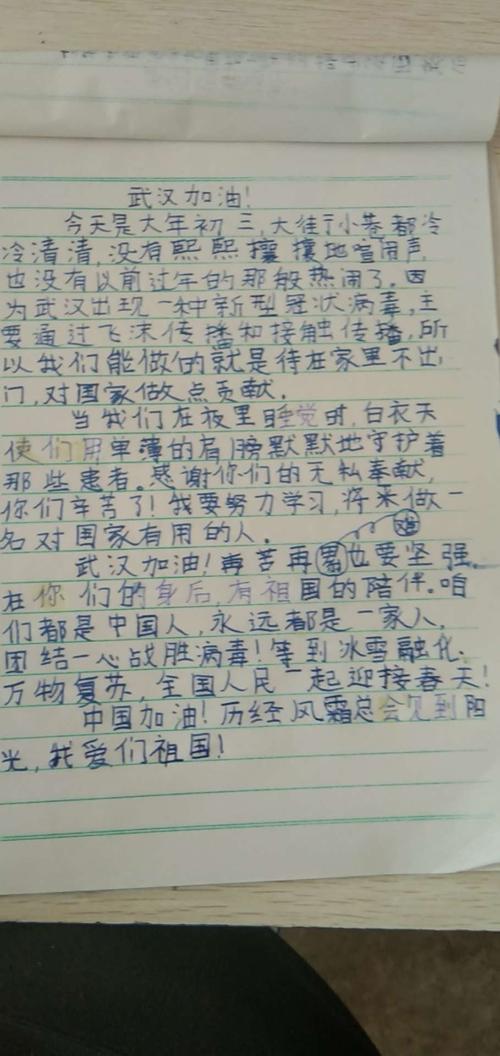 武汉加油!
今天是大年初三,大街小巷都冷
冷清清,没有熙熙攘攘地喧闹声,
也没有以前过年的那般热闹了。因
为武汉出现一种新型冠状病毒,主
要通过飞沫传播和接触传播,所
以我们能做的就是待在家里不出
门,对国家做点贡献。
当我们在夜里睡觉时,白衣天
使们用单薄的肩膀默默地守护着
那些患者。感谢你们的无私奉献,
你们辛苦了!我要努力学习,将来做一
名对国家有用的人。
武汉加油!再苦再累也要坚强。
在你们的身后,有祖国的陪伴。咱
们都是中国人,永远都是一家人,
团结一心战胜病毒!等到冰雪融化,
万物复苏,全国人民一起迎接春天!
中国加油!历经风霜总会见到阳
光,我爱们祖国!